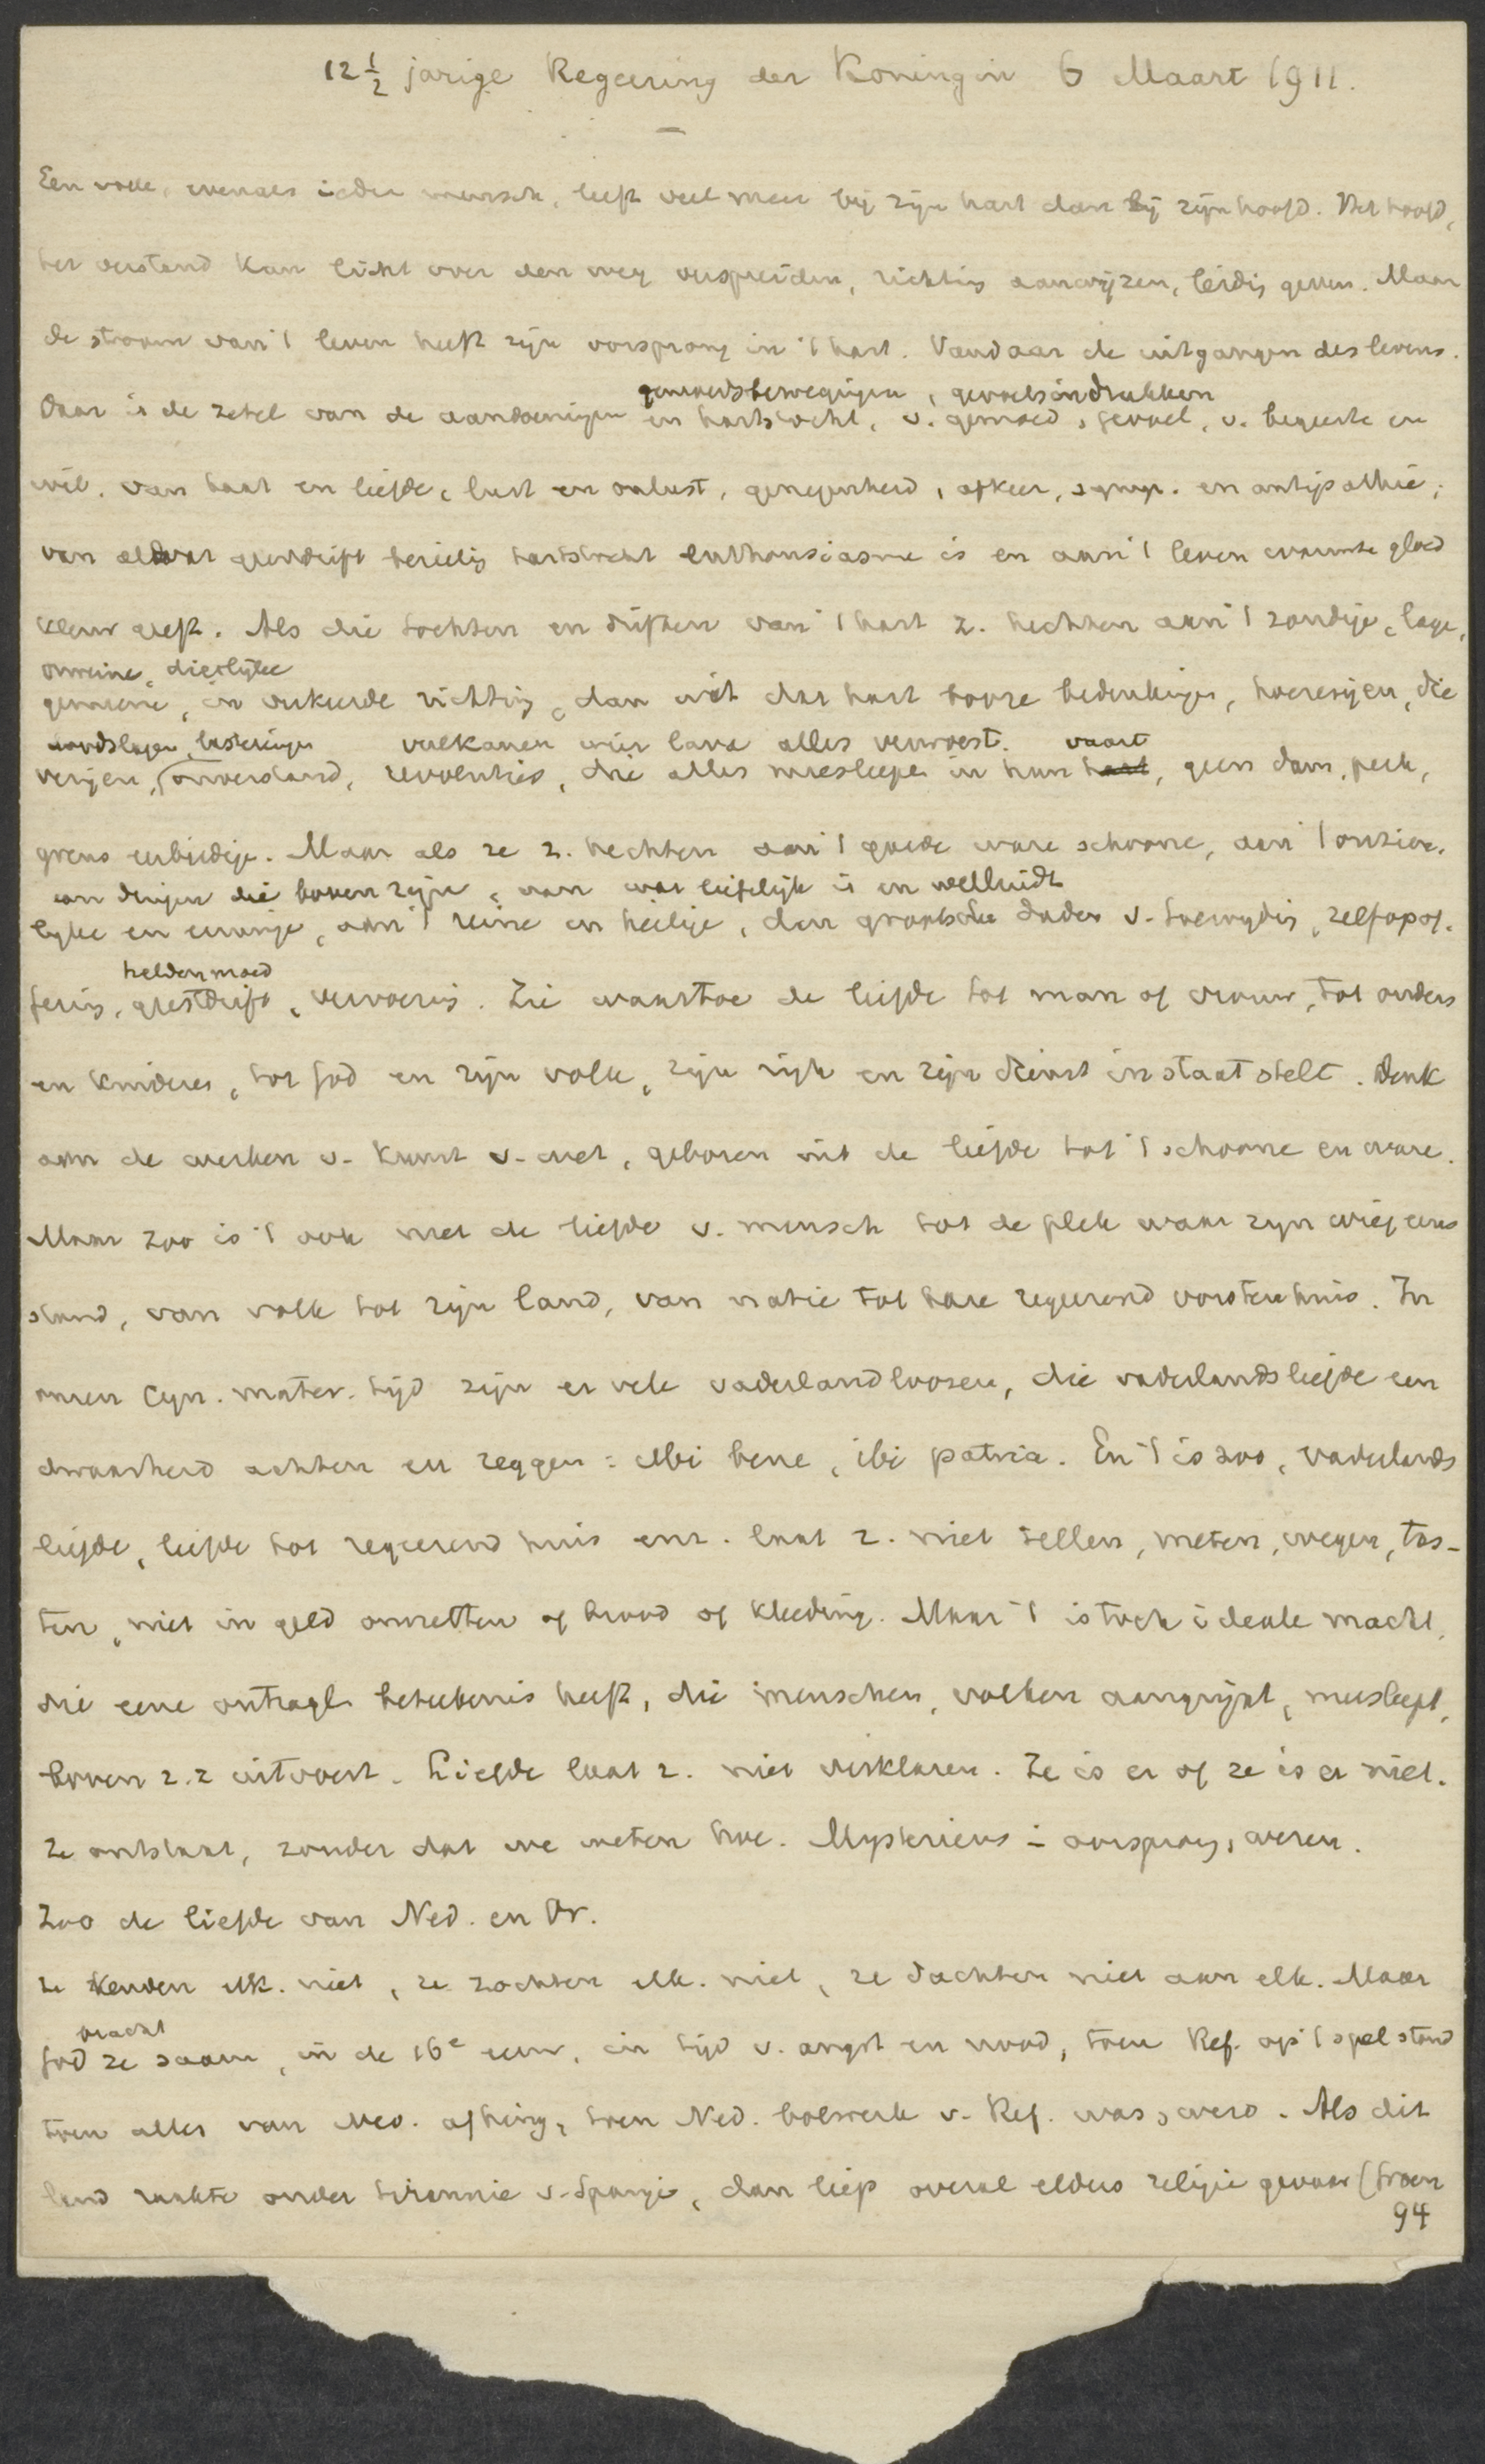 12 1/2 jarige Regeering der Koningin 6 Maart 1911.
Een volk, evenals ieder mensch, leeft veel meer bij zijn hart dan bij zijn hoofd. Het hoofd,
het verstand kan licht over den weg verspreiden, richting aanwijzen, leidig geven. Maar
de stroom van 't leven heeft zijn oorsprong in 't hart. Vandaar de uitgangen des levens.
gemoedsbewegingen, gevoelsindrukken
Daar is de zetel van de aandoeningen en hartstocht, v. gemoed, gevoel, v. begeerte en
wil, van haat en liefde, lust en onlust, genegenheid, afkeer, symp. en antipathie;
van al wat geestdrift bezielig hartstocht enthousiasme is en aan 't leven warmte gloed
kleur geeft. Als die tochten en driften van 't hart z. hechten aan 't zondige, lage,
onreine, dierlijke
gemeene, in verkeerde richting, dan uit dat hart booze bedenkingen, hoererijen, die
doodslagen, lasteringen vulkanen wier lava alles verwoest. vaart
verijen, (onverstand, revoluties, die alles meesleepen in hun hart, geen dam, perk,
grens eerbiedige. Maar als ze z. hechten aan 't goede ware schoone, aan 't onzien.
aan dingen die boven zijn, aan wat liefelijk is en welluidt
lijke en eeuwige, aan 't reine en heilige, dan grootsche daden v. toewijdig, zelfopof.
heldenmoed
fering, geestdrift, vervoering. Zie waartoe de liefde tot man of vrouw, tot ouders
en kinderen, tot God en zijn volk, zijn rijk en zijn dienst in staat stelt. Denk
aan de werken v. kunst v. wet, geboren uit de liefde tot 't schoone en ware.
Maar zoo is 't ook met de liefde v. mensch tot de plek waar zijn wieg eens
stond, van volk tot zijn land, van natie tot hare regeerend vorstenhuis. In
onzen cyn. mater. tijd zijn er vele vaderlandloozen, die vaderlandsliefde een
dwaasheid achten en zeggen: ubi bene, ibi patria. En 't is zoo, vaderlands
liefde, liefde tot regeerend huis enz. laat z. niet tellen, meten, wegen, tas-
ten, niet in geld omzetten of brood of kleeding. Maar 't is toch ideale macht,
die eene ontzagl. beteekenis heeft, die menschen, volken aangrijpt, meesleept,
boven z.z uitvoert. Liefde laat z. niet verklaren. Ze is er of ze is er niet.
Ze ontstaat, zonder dat we weten hoe. Mysterieus in oorsprong, wezen.
Zoo de liefde van Ned. en Or.
Ze kenden elk. niet, ze zochten elk. niet, ze dachten niet aan elk. Maar
bracht
God ze saam, in de 16e eeuw, in tijd v. angst en nood, toen Ref. op 't spel stond
toen alles van Ned. afhing, toen Ned. bolwerk v. Ref. was, werd. Als dit
land raakte onder tirannie v. Spanje, dan liep overal elders religie gevaar (Groen
94